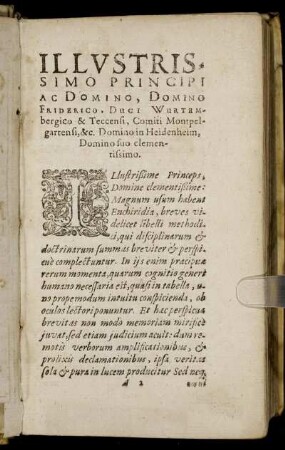 ILLVSTRIS-
SIMO PRINCIPI
AC DOMINO, DOMINO
FRIDERICO, DUCI WURTEM-
bergico & Teccensi, Comiti Montpel-
gartensi, &c. Domino in Heidenheim,
Domino suo clemen-
tissimo.
ILlustrissime Princeps,
Domine clementissime:
Magnum usum habent
Enchiridia, breves vi-
delicet libelli methodi-
ci, qui disciplinarum &
doctrinarum summas breviter & perspi-
cuè complectuntur. In ijs enim præcipua
rerum momenta, quarum cognitio generi
humano necessaria est, quasi in tabella, u-
no propemodum intuitu conspicienda, ob
oculos lectori ponuntur. Et hæc perspicua
brevitas non modo memoriam mirificè
juvat, sed etiam judicium acuit: dum re-
motis verborum amplificationibus, &
prolixis declamationibus, ipsa veritas
sola & pura in lucem producitur Sed neq
A 2